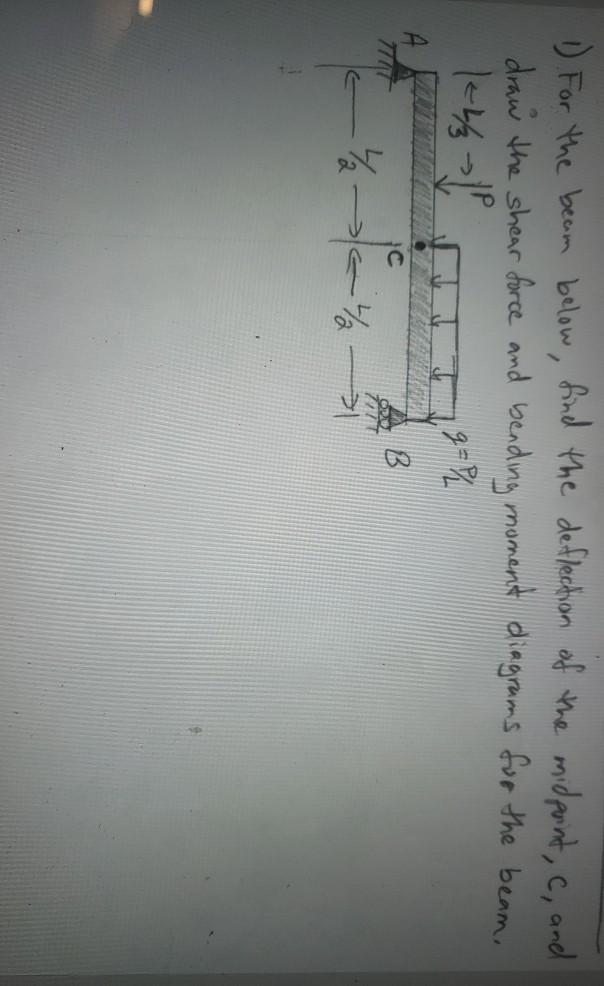 1) For the beam below, find the deflection of the midpoint, C, and
draw the shear force and bending moment diagrams for the beam.
|← L/3 →| P
q = P/L
A
C
B
|← L/2 →|← L/2 →|